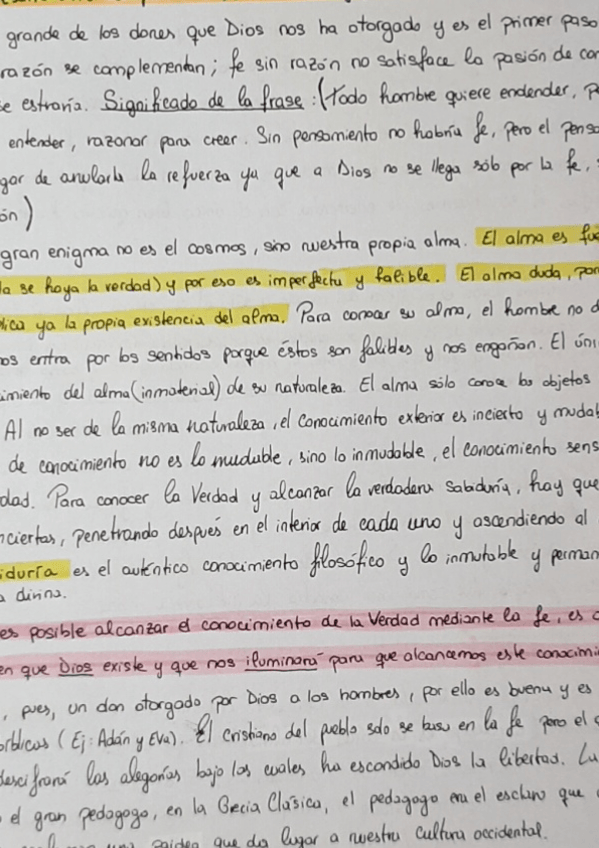 grande de los dones que Dios nos ha otorgado y es el primer paso
razón se complementan; fe sin razón no satisface la pasión de con
se estraría. Significado de la frase: (Todo hombre quiere endender, p
entender, razonar para creer. Sin pensamiento no habría fe, pero el pensa
gar de anularla la refuerza ya que a Dios no se llega sólo por la fe,
ón)
gran enigma no es el cosmos, sino nuestra propia alma. El alma es fue
la se haya la verdad) y por eso es imperfecta y falible. El alma duda, por
lica ya la propia existencia del alma. Para conocer su alma, el hombre no d
os entra por los sentidos porque éstos son falibles y nos engañan. El úni
imiento del alma (inmaterial) de su naturaleza. El alma sólo conoce los objetos
Al no ser de la misma naturaleza, el conocimiento exterior es incierto y mudab
de conocimiento no es lo mudable, sino lo inmudable, el conocimiento sens
dad. Para conocer la Verdad y alcanzar la verdadera Sabiduría, hay que
nciertas, penetrando después en el interior de cada uno y ascendiendo al
iduría es el auténtico conocimiento filosófico y lo inmutable y perman
a divina.
es posible alcanzar el conocimiento de la Verdad mediante la fe, es
en que Dios existe y que nos iluminará para que alcancemos este conocimi
, pues, un don otorgado por Dios a los hombres, por ello es buena y es
órbicas (Ej: Adán y Eva). El cristiano del pueblo solo se basa en la fe pero el
descifrará las alegorías bajo las cuales ha escondido Dios la libertad. Lu
el gran pedagogo, en la Grecia Clásica, el pedagogo era el esclavo que
una paidea que da lugar a nuestra cultura occidental.